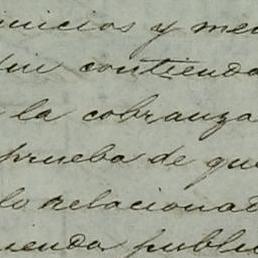 inicios y me
que contienda
la cobranza
prueba de que
lo relacionad
ienda public